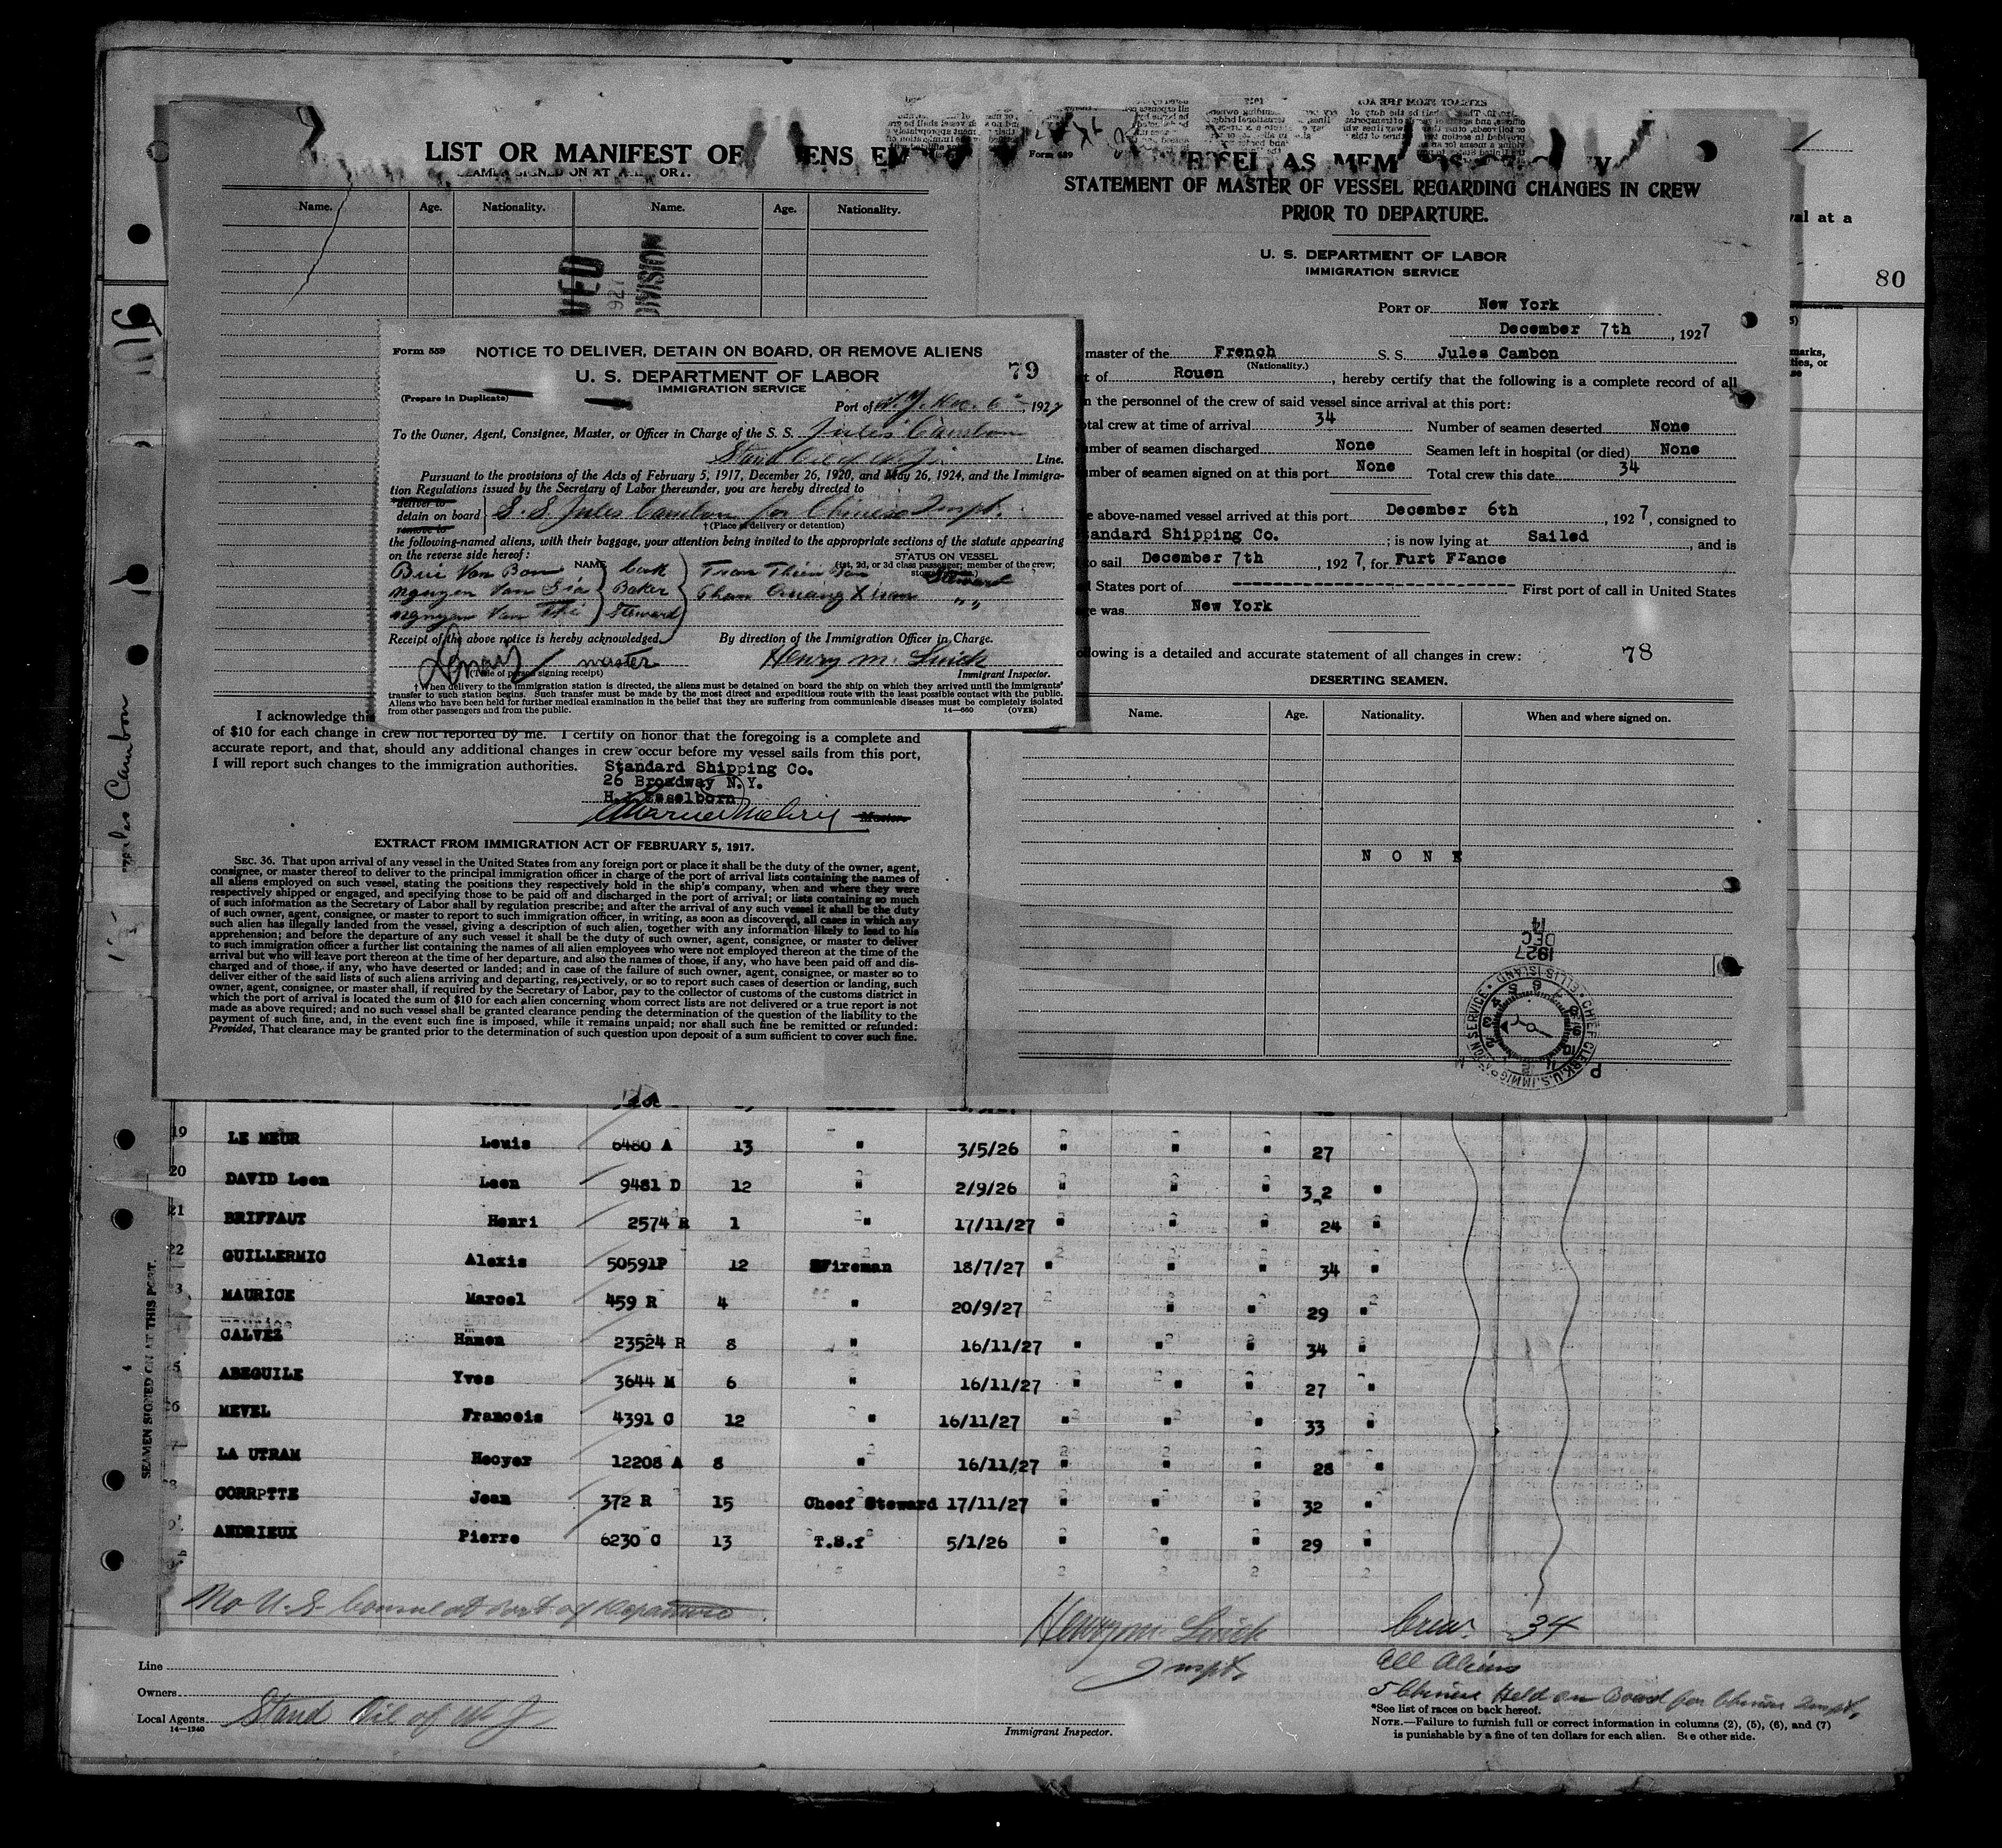 LIST OR MANIFEST OF
SEAMEN SIGNED ON AT
Name. Age. Nationality. Name. Age. Nationality.
DIVISION
Form 559
NOTICE TO DELIVER, DETAIN ON BOARD, OR REMOVE ALIENS
79
U. S. DEPARTMENT OF LABOR
IMMIGRATION SERVICE
(Prepare in Duplicate)
Port of N.Y. Dec. 6th, 1927
To the Owner, Agent, Consignee, Master, or Officer in Charge of the S. S. Jules Cambon
Stand Oil of N.J. Line.
Pursuant to the provisions of the Acts of February 5, 1917, December 26, 1920, and May 26, 1924, and the Immigra-
tion Regulations issued by the Secretary of Labor thereunder, you are hereby directed to
deliver to
detain on board S. S. Jules Cambon for Chinese Inspt.
remove to
†(Place of delivery or detention)
the following-named aliens, with their baggage, your attention being invited to the appropriate sections of the statute appearing
on the reverse side hereof:
NAME
STATUS ON VESSEL
(1st, 2d, or 3d class passenger; member of the crew;
Bui Van Bon Cook Tran Thien Steward
Nguyen Van Gia Baker Pham Quang Xuan " "
Nguyen Van Thi Steward
Receipt of the above notice is hereby acknowledged.
By direction of the Immigration Officer in Charge.
master
Henry M. Luick
(Title of person signing receipt)
Immigrant Inspector.
†When delivery to the immigration station is directed, the aliens must be detained on board the ship on which they arrived until the immigrants'
transfer to such station begins. Such transfer must be made by the most direct and expeditious route with the least possible contact with the public.
Aliens who have been held for further medical examination in the belief that they are suffering from communicable diseases must be completely isolated
from other passengers and from the public.
14—660 (OVER)
I acknowledge
of $10 for each change in crew not reported by me. I certify on honor that the foregoing is a complete and
accurate report, and that, should any additional changes in crew occur before my vessel sails from this port,
I will report such changes to the immigration authorities.
Standard Shipping Co.
26 Broadway N.Y.
H. Esselborn
Master.
EXTRACT FROM IMMIGRATION ACT OF FEBRUARY 5, 1917.
SEC. 36. That upon arrival of any vessel in the United States from any foreign port or place it shall be the duty of the owner, agent,
consignee, or master thereof to deliver to the principal immigration officer in charge of the port of arrival lists containing the names of
all aliens employed on such vessel, stating the positions they respectively hold in the ship's company, when and where they were
respectively shipped or engaged, and specifying those to be paid off and discharged in the port of arrival; or lists containing so much
of such information as the Secretary of Labor shall by regulation prescribe; and after the arrival of any such vessel it shall be the duty
of such owner, agent, consignee, or master to report to such immigration officer, in writing, as soon as discovered, all cases in which any
such alien has illegally landed from the vessel, giving a description of such alien, together with any information likely to lead to his
apprehension; and before the departure of any such vessel it shall be the duty of such owner, agent, consignee, or master to deliver
to such immigration officer a further list containing the names of all alien employees who were not employed thereon at the time of the
arrival but who will leave port thereon at the time of her departure, and also the names of those, if any, who have been paid off and dis-
charged and of those, if any, who have deserted or landed; and in case of the failure of such owner, agent, consignee, or master so to
deliver either of the said lists of such aliens arriving and departing, respectively, or so to report such cases of desertion or landing, such
owner, agent, consignee, or master shall, if required by the Secretary of Labor, pay to the collector of customs of the customs district in
which the port of arrival is located the sum of $10 for each alien concerning whom correct lists are not delivered or a true report is not
made as above required; and no such vessel shall be granted clearance pending the determination of the question of the liability to the
payment of such fine, and, in the event such fine is imposed, while it remains unpaid; nor shall such fine be remitted or refunded:
Provided, That clearance may be granted prior to the determination of such question upon deposit of a sum sufficient to cover such fine.
STATEMENT OF MASTER OF VESSEL REGARDING CHANGES IN CREW
PRIOR TO DEPARTURE.
U. S. DEPARTMENT OF LABOR
IMMIGRATION SERVICE
PORT OF New York
December 7th, 1927
master of the French S. S. Jules Cambon
(Nationality.)
of Rouen, hereby certify that the following is a complete record of all
the personnel of the crew of said vessel since arrival at this port:
crew at time of arrival 34 Number of seamen deserted None
of seamen discharged None Seamen left in hospital (or died) None
of seamen signed on at this port None Total crew this date 34
above-named vessel arrived at this port December 6th, 1927, consigned to
Standard Shipping Co.; is now lying at Sailed, and is
to sail December 7th, 1927, for Furt France
States port of First port of call in United States
was New York
is a detailed and accurate statement of all changes in crew:
78
DESERTING SEAMEN.
Name. Age. Nationality. When and where signed on.
N O N E
1927 DEC 14
CHIEF CLERK, U.S. IMMIGRATION SERVICE • ELLIS ISLAND
at a
80
Jules Cambon
SEAMEN SIGNED ON AT THIS PORT.
19 LE MEUR Louis 6480 A 13 " 3/5/26 " " " 27
20 DAVID Leon Leon 9481 D 12 " 2/9/26 " " " 32 "
21 BRIFFAUT Henri 2574 R 1 " 17/11/27 " " " 24 "
22 GUILLERMIC Alexis 50591P 12 Fireman 18/7/27 " " " 34 "
3 MAURICE Marcel 459 R 4 " 20/9/27 " " 29 "
CALVEZ Hamon 23524 R 8 " 16/11/27 " " " 34 "
5 ABEGUILE Yves 3644 M 6 " 16/11/27 " " " 27 "
6 MEVEL Francois 4391 C 12 " 16/11/27 " " " 33 "
7 LA UTRAM Hecyer 12208 A 8 " 16/11/27 " " " 28 "
8 CORRPTTE Jean 372 R 15 Cheef Steward 17/11/27 " " " 32 "
9 ANDRIEUX Pierre 6230 C 13 T.S.f 5/1/26 " " " 29 "
No U.S. Consul at Port of Departure
Henry M. Luick
Inspt.
Crew. 34
All Aliens
5 Chinese Held on Board for Chinese Inspt.
Line
Owners
Local Agents Stand Oil of N J
14—1240
Immigrant Inspector.
*See list of races on back hereof.
NOTE.—Failure to furnish full or correct information in columns (2), (5), (6), and (7)
is punishable by a fine of ten dollars for each alien. See other side.